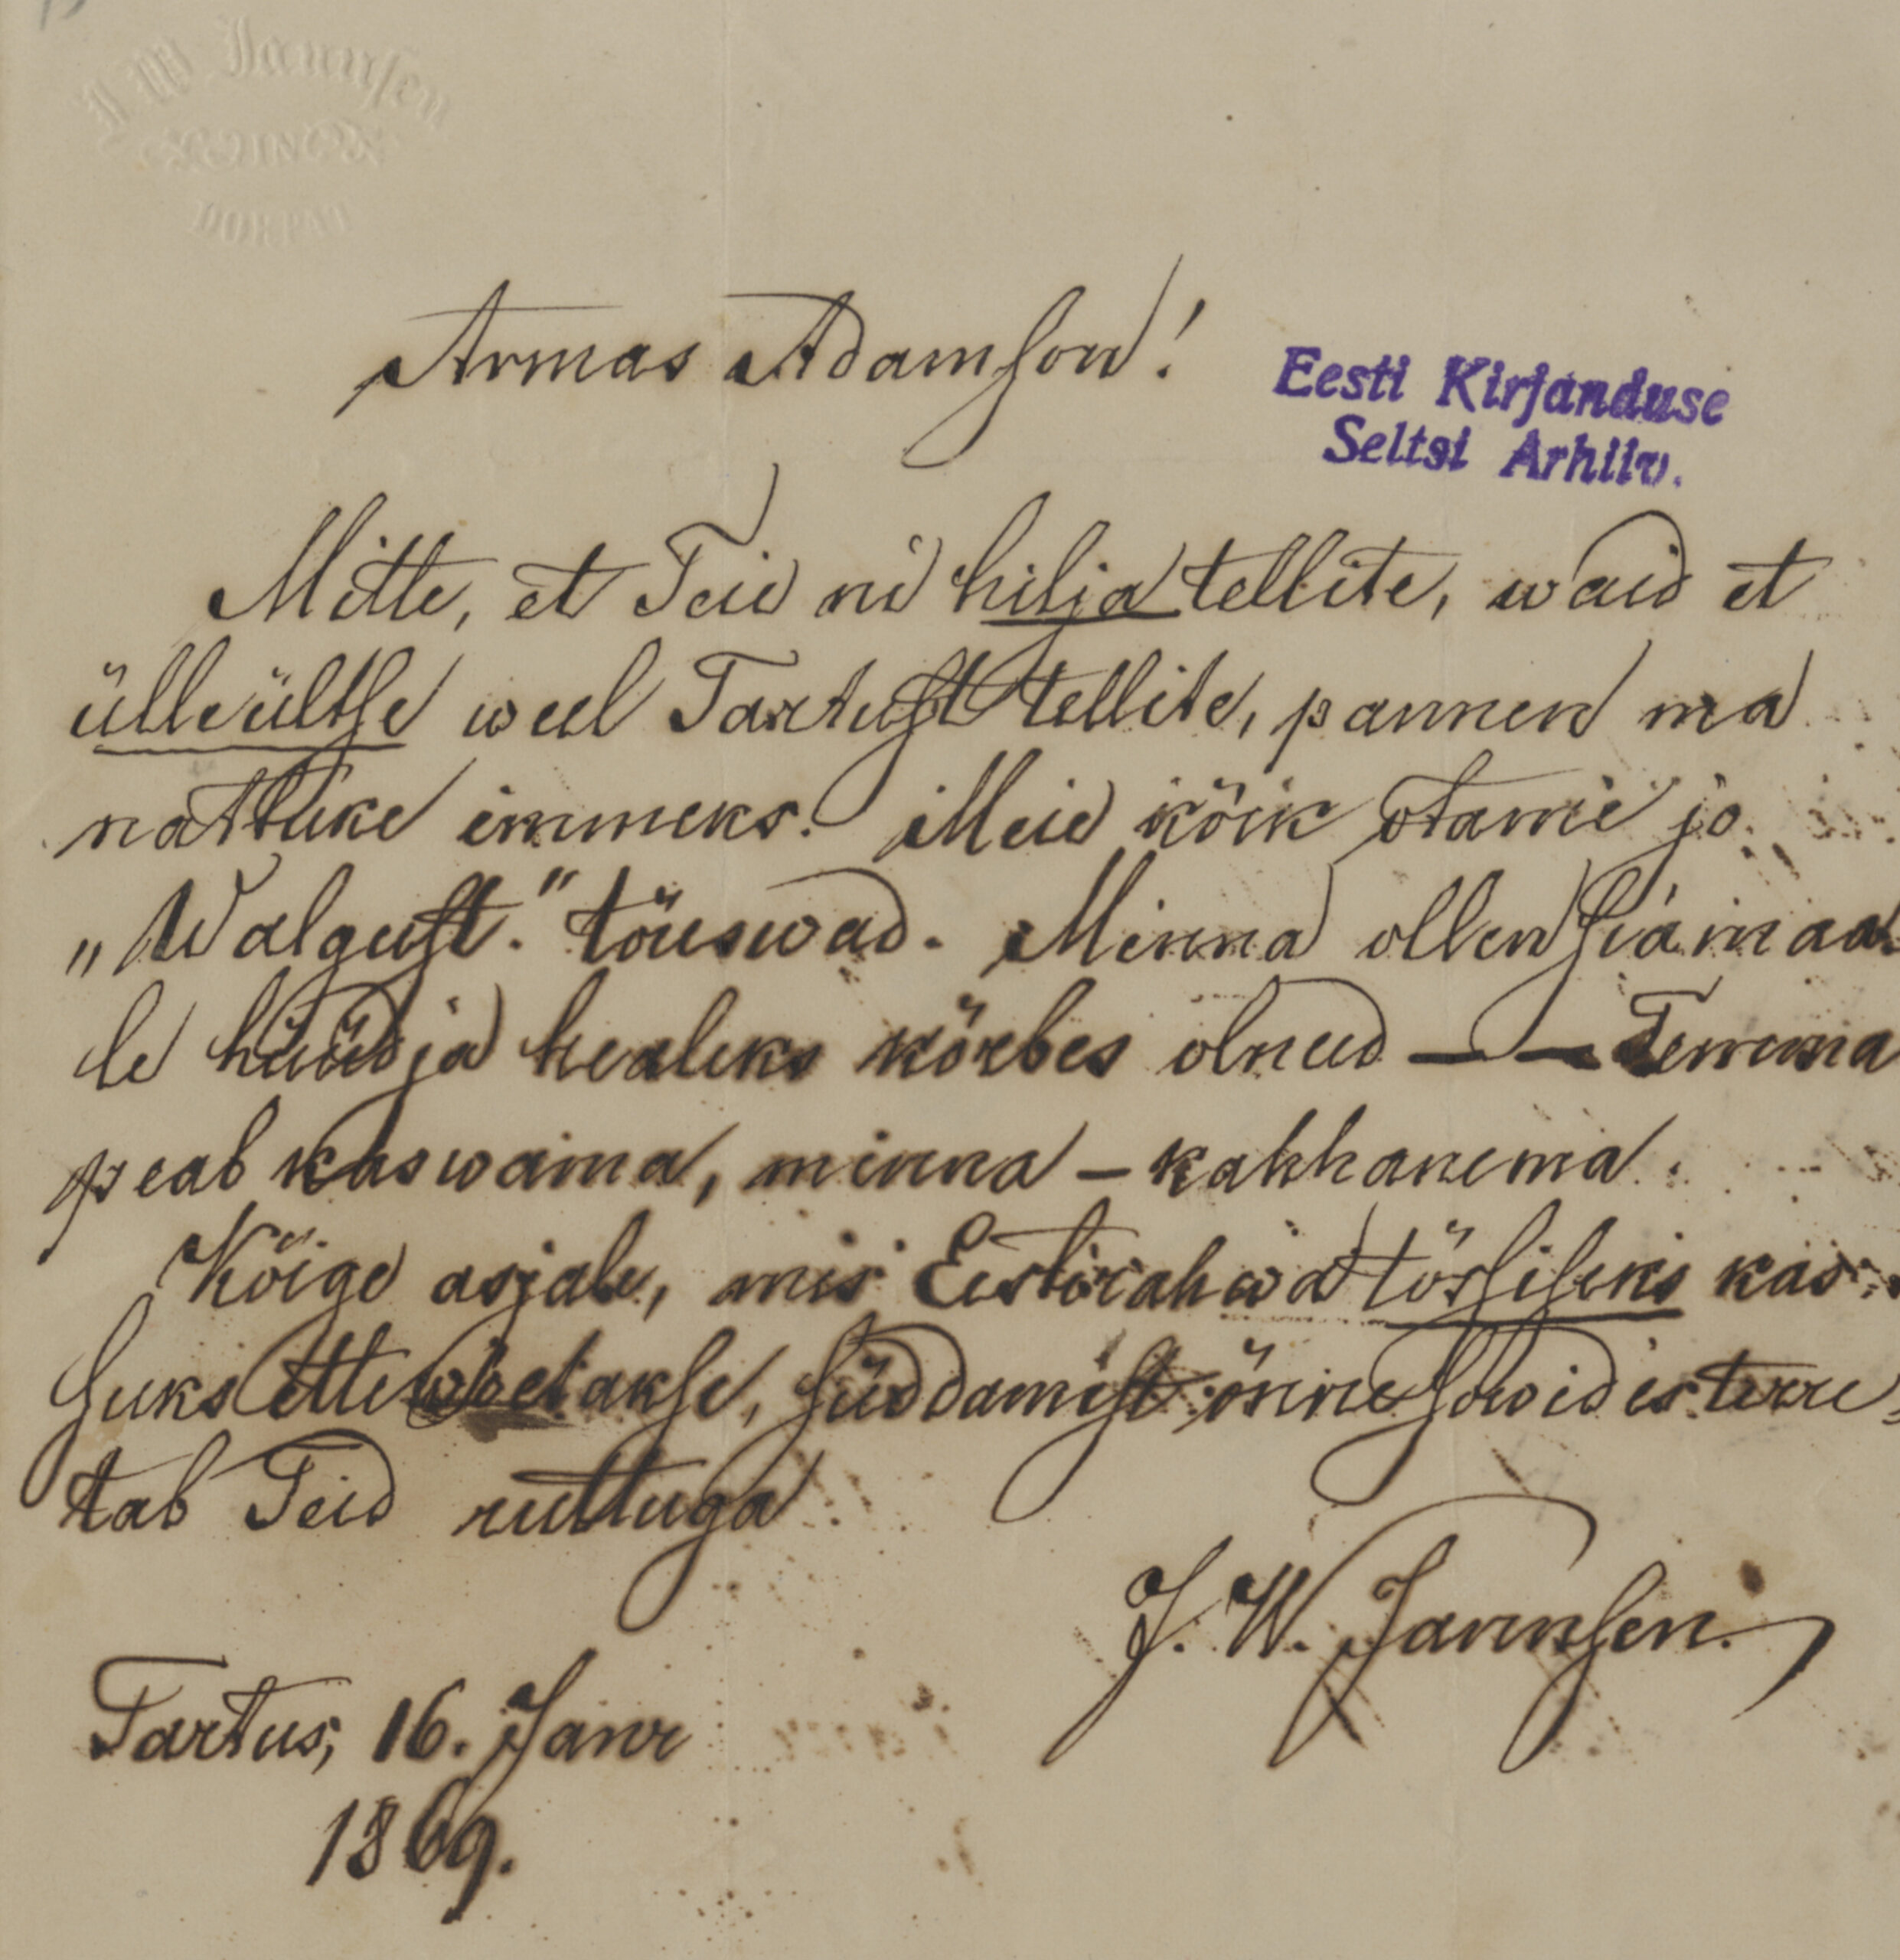 J W Jannsen
DORPAT
Armas Adamson!
Eesti Kirjanduse
Seltsi Arhiiv.
Mitte, et Teie ni hilja tellite, waid et
ülleültse weel Tartust tellite, pannen ma
nattuke immeks. Meie kõik otame jo
„Walgust." tõuswad. Minna ollen siamaa-
le hüüdja healeks kõrbes olnud — — Temma
peab kaswama, minna – kahhanema.
Kõige asjale, mis Eestirahwa tõssiseks kas-
suks ettewõetakse, süddamest õnne sowides terre-
tab Teid ruttuga
J. W. Jannsen.
Tartus, 16. Janr
1869.